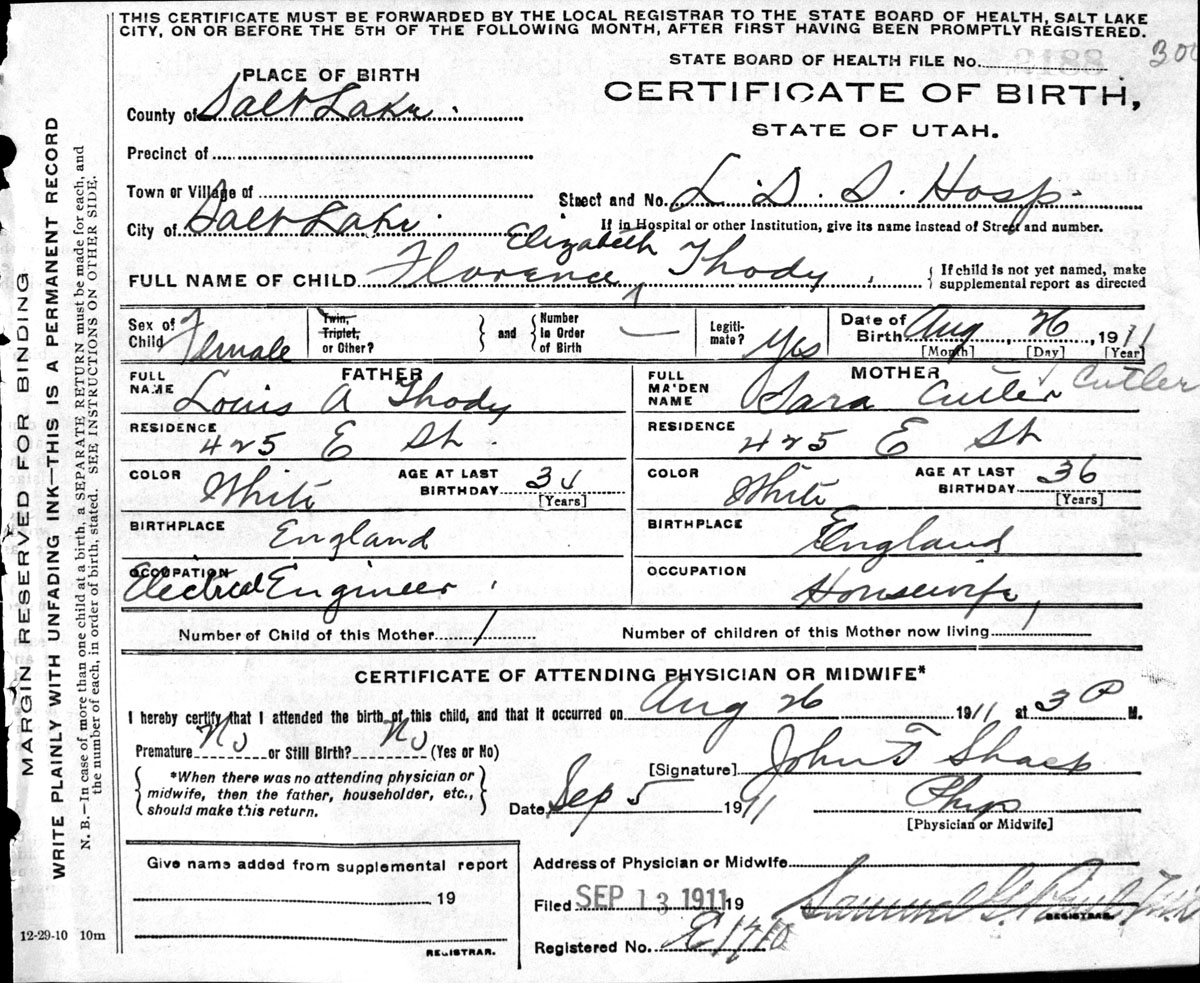 THIS CERTIFICATE MUST BE FORWARDED BY THE LOCAL REGISTRAR TO THE STATE BOARD OF HEALTH, SALT LAKE
CITY, ON OR BEFORE THE 5TH OF THE FOLLOWING MONTH, AFTER FIRST HAVING BEEN PROMPTLY REGISTERED.
STATE BOARD OF HEALTH FILE No.
PLACE OF BIRTH
CERTIFICATE OF BIRTH,
STATE OF UTAH.
County of Salt Lake.
Precinct of
Town or Village of
Street and No. L. D. S. Hosp.
City of Salt Lake.
If in Hospital or other Institution, give its name instead of Street and number.
Elizabeth
FULL NAME OF CHILD Florence Thody
If child is not yet named, make
supplemental report as directed
Sex of Child Female
Twin, Triplet, or Other?
and
Number In Order of Birth
Legiti-mate? Yes
Date of Birth Aug 26, 1911
[Month] [Day] [Year]
FATHER
FULL NAME Louis A Thody
RESIDENCE 425 E St.
COLOR White
AGE AT LAST BIRTHDAY
[Years]
BIRTHPLACE England
OCCUPATION Electrical Engineer
MOTHER
FULL MAIDEN NAME Sara Cutler Cutler
RESIDENCE 425 E St
COLOR White
AGE AT LAST BIRTHDAY 36
[Years]
BIRTHPLACE England
OCCUPATION Housewife
Number of Child of this Mother 1
Number of children of this Mother now living 1
CERTIFICATE OF ATTENDING PHYSICIAN OR MIDWIFE*
I hereby certify that I attended the birth of this child, and that it occurred on Aug 26 1911 at 3 P M.
Premature No or Still Birth? No (Yes or No)
*When there was no attending physician or
midwife, then the father, householder, etc.,
should make this return.
[Signature] John F Sharp
Date Sep 5 1911
Phys
[Physician or Midwife]
Give name added from supplemental report
19
REGISTRAR.
Address of Physician or Midwife
Filed SEP 13 1911 19
Samuel G. Paul
REGISTRAR.
Registered No.
12-29-10 10m
MARGIN RESERVED FOR BINDING
WRITE PLAINLY WITH UNFADING INK—THIS IS A PERMANENT RECORD
N. B.—In case of more than one child at a birth, a SEPARATE RETURN must be made for each, and
the number of each, in order of birth, stated. SEE INSTRUCTIONS ON OTHER SIDE.